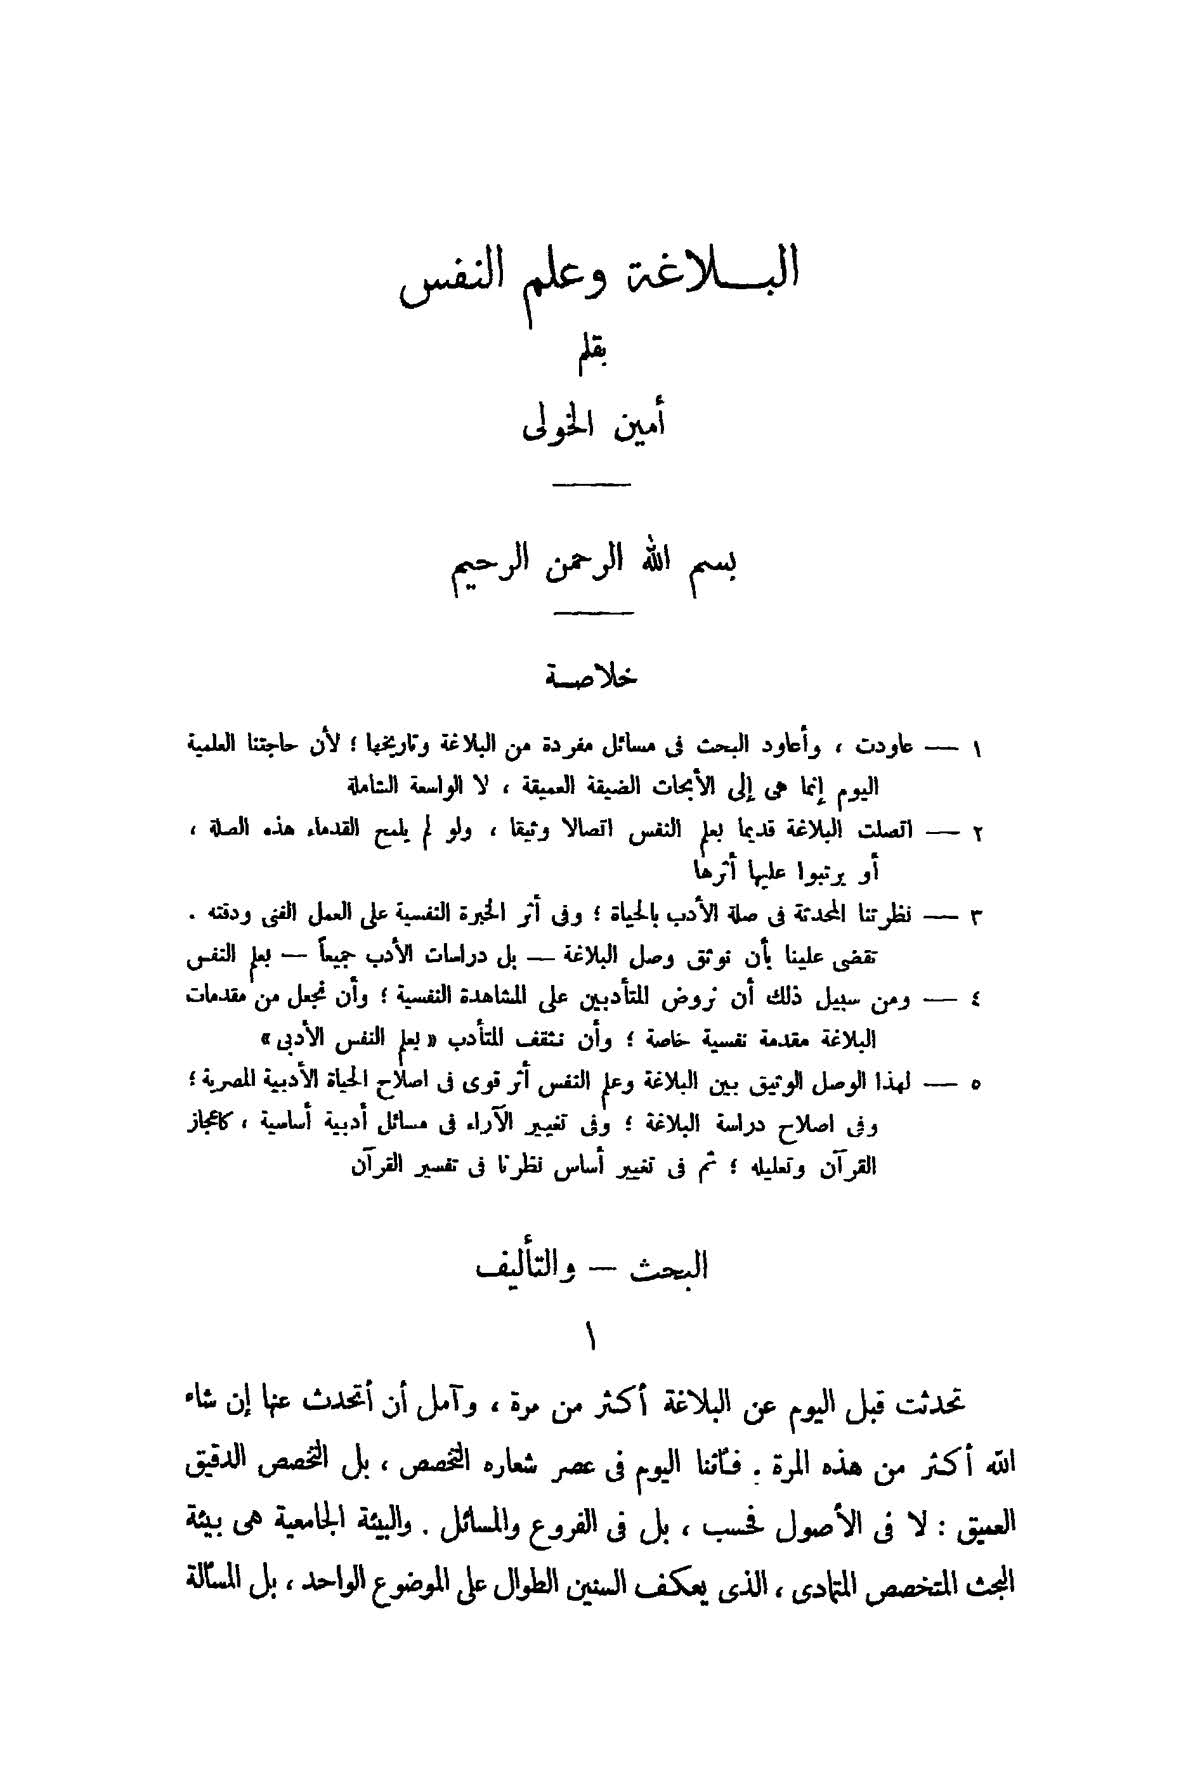 البلاغة وعلم النفس
بقلم
أمين الخولى
بسم الله الرحمن الرحيم
خلاصة
١ — عاودت ، وأعاود البحث فى مسائل مفردة من البلاغة وتاريخها ؛ لأن حاجتنا العلمية
اليوم إنما هى إلى الأبحاث الضيقة العميقة ، لا الواسعة الشاملة
٢ — اتصلت البلاغة قديما بعلم النفس اتصالا وثيقا ، ولو لم يلمح القدماء هذه الصلة ،
أو يرتبوا عليها أثرها
٣ — نظرتنا المحدثة فى صلة الأدب بالحياة ؛ وفى أثر الخبرة النفسية على العمل الفنى ودقته .
تقضى علينا بأن نوثق وصل البلاغة — بل دراسات الأدب جميعاً — بعلم النفس
٤ — ومن سبيل ذلك أن نروض المتأدبين على المشاهدة النفسية ؛ وأن نجعل من مقدمات
البلاغة مقدمة نفسية خاصة ؛ وأن نثقف المتأدب «بعلم النفس الأدبى»
٥ — لهذا الوصل الوثيق بين البلاغة وعلم النفس أثر قوى فى اصلاح الحياة الأدبية المصرية ؛
وفى اصلاح دراسة البلاغة ؛ وفى تغيير الآراء فى مسائل أدبية أساسية ، كاعجاز
القرآن وتعليله ؛ ثم فى تغيير أساس نظرنا فى تفسير القرآن
البحث — والتأليف
١
تحدثت قبل اليوم عن البلاغة أكثر من مرة ، وآمل أن أتحدث عنها إن شاء
الله أكثر من هذه المرة . فاٴننا اليوم فى عصر شعاره التخصص ، بل التخصص الدقيق
العميق : لا فى الأصول فحسب ، بل فى الفروع والمسائل . والبيئة الجامعية هى بيئة
البحث المتخصص المتمادى ، الذى يعكف السنين الطوال على الموضوع الواحد ، بل المسألة